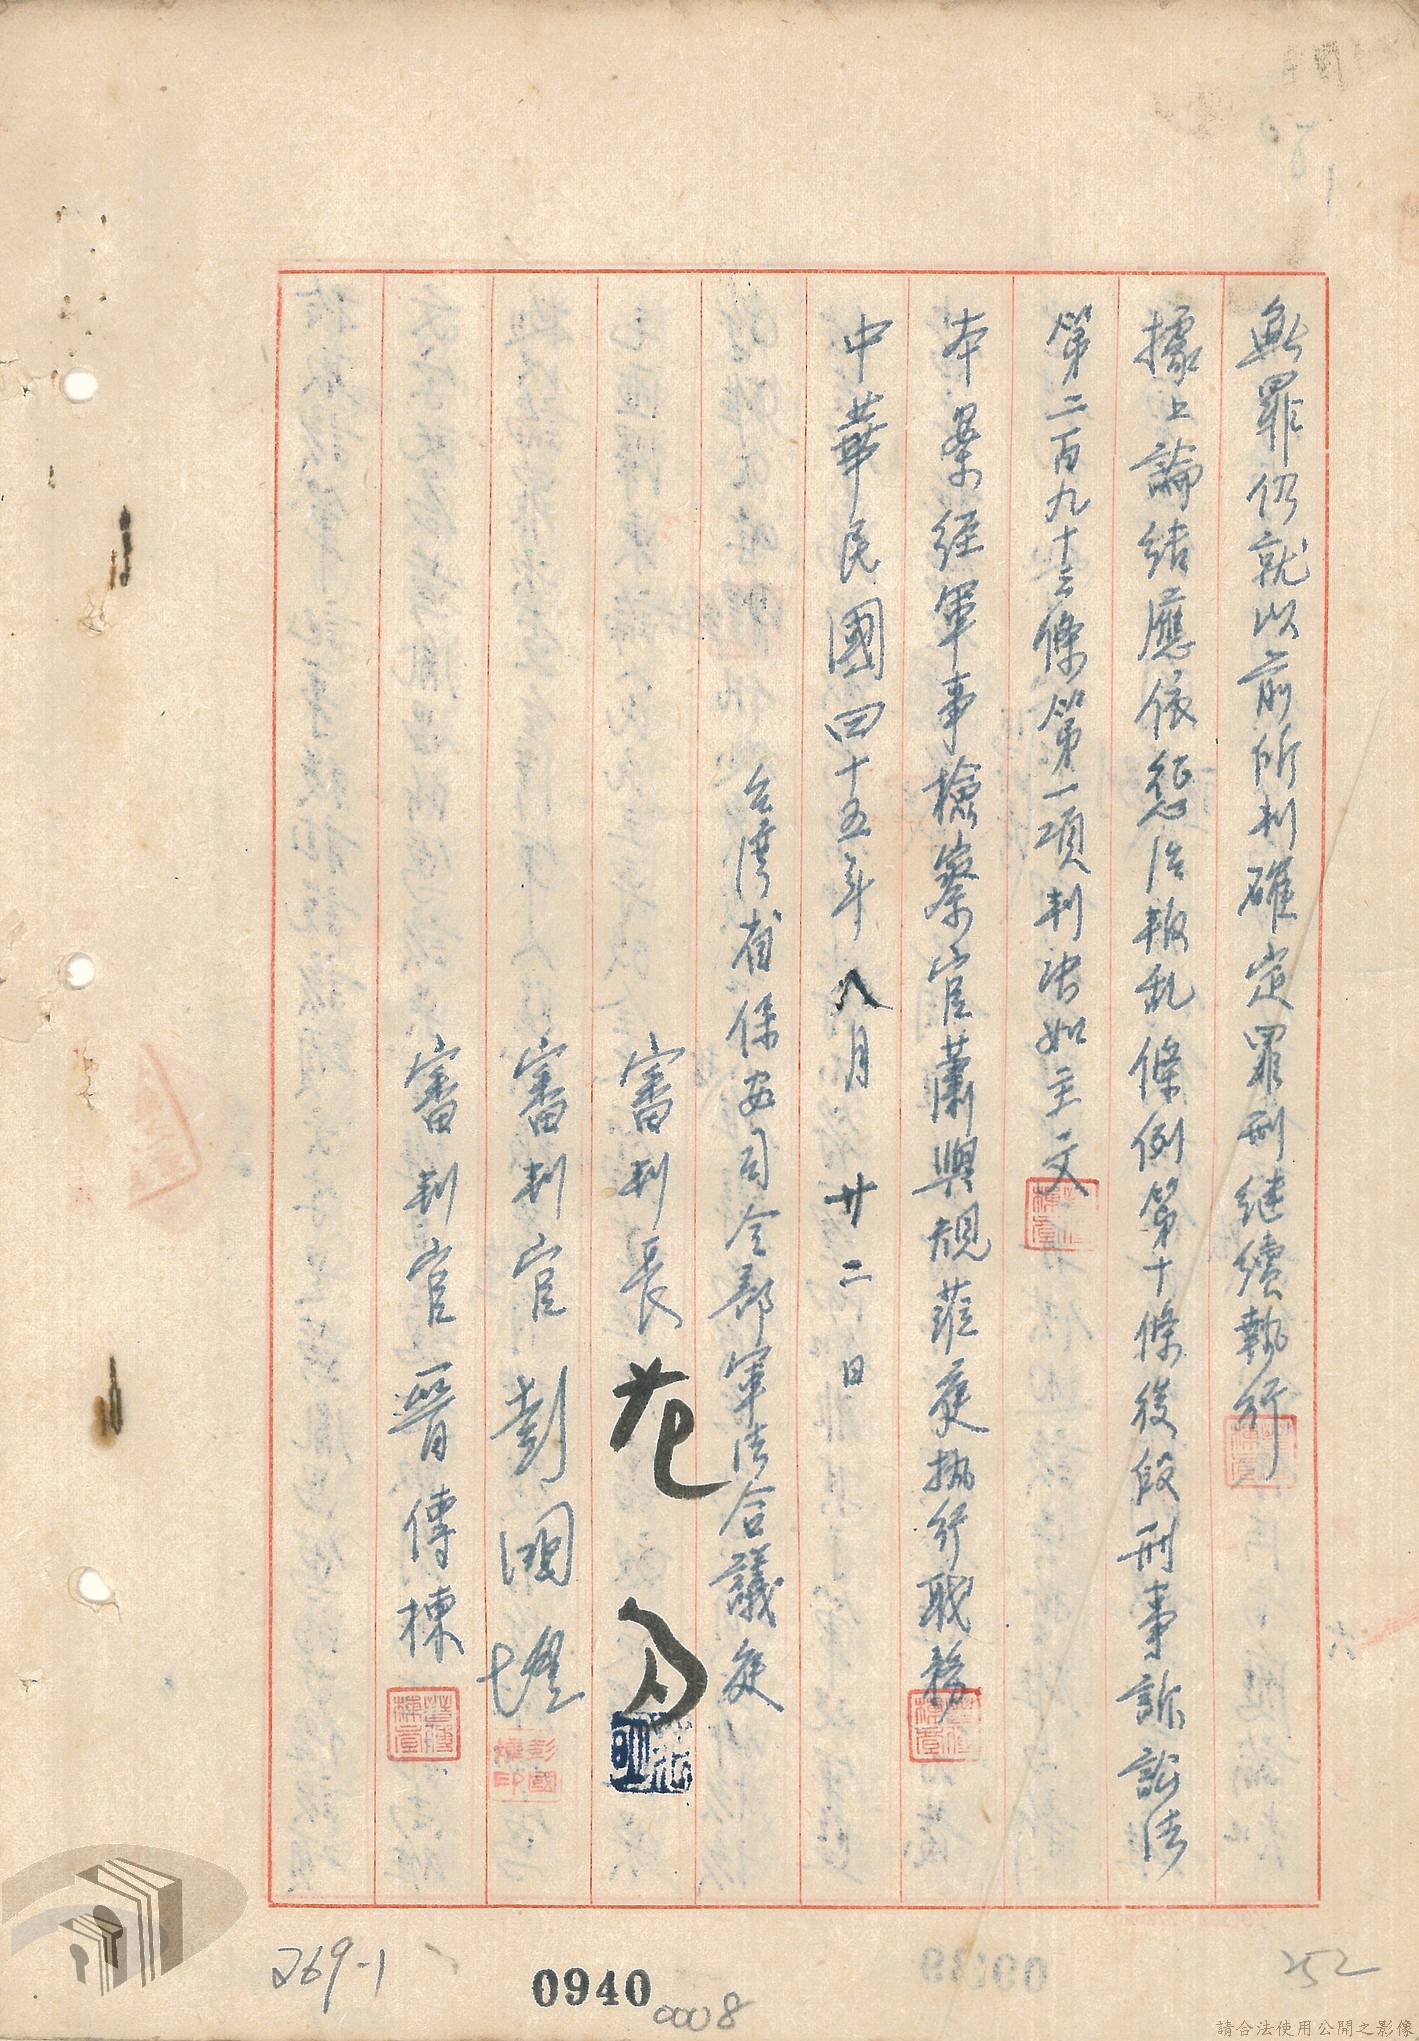 無罪仍就以前所判確定罪刑继續執行
據上論結應依惩治叛乱條例第十條後段刑事訴訟法
第二百九十三條第一項判决如主文
本案经軍事檢察官蕭與規蒞庭执行职務
中華民國四十五年八月廿二日
台湾省保安司令部軍法合議庭
審判長
審判官 彭國壎
審判官 晉傳棟
晉傳棟章
彭國壎印
269-1
0940
0008
252
請合法使用公開之影像